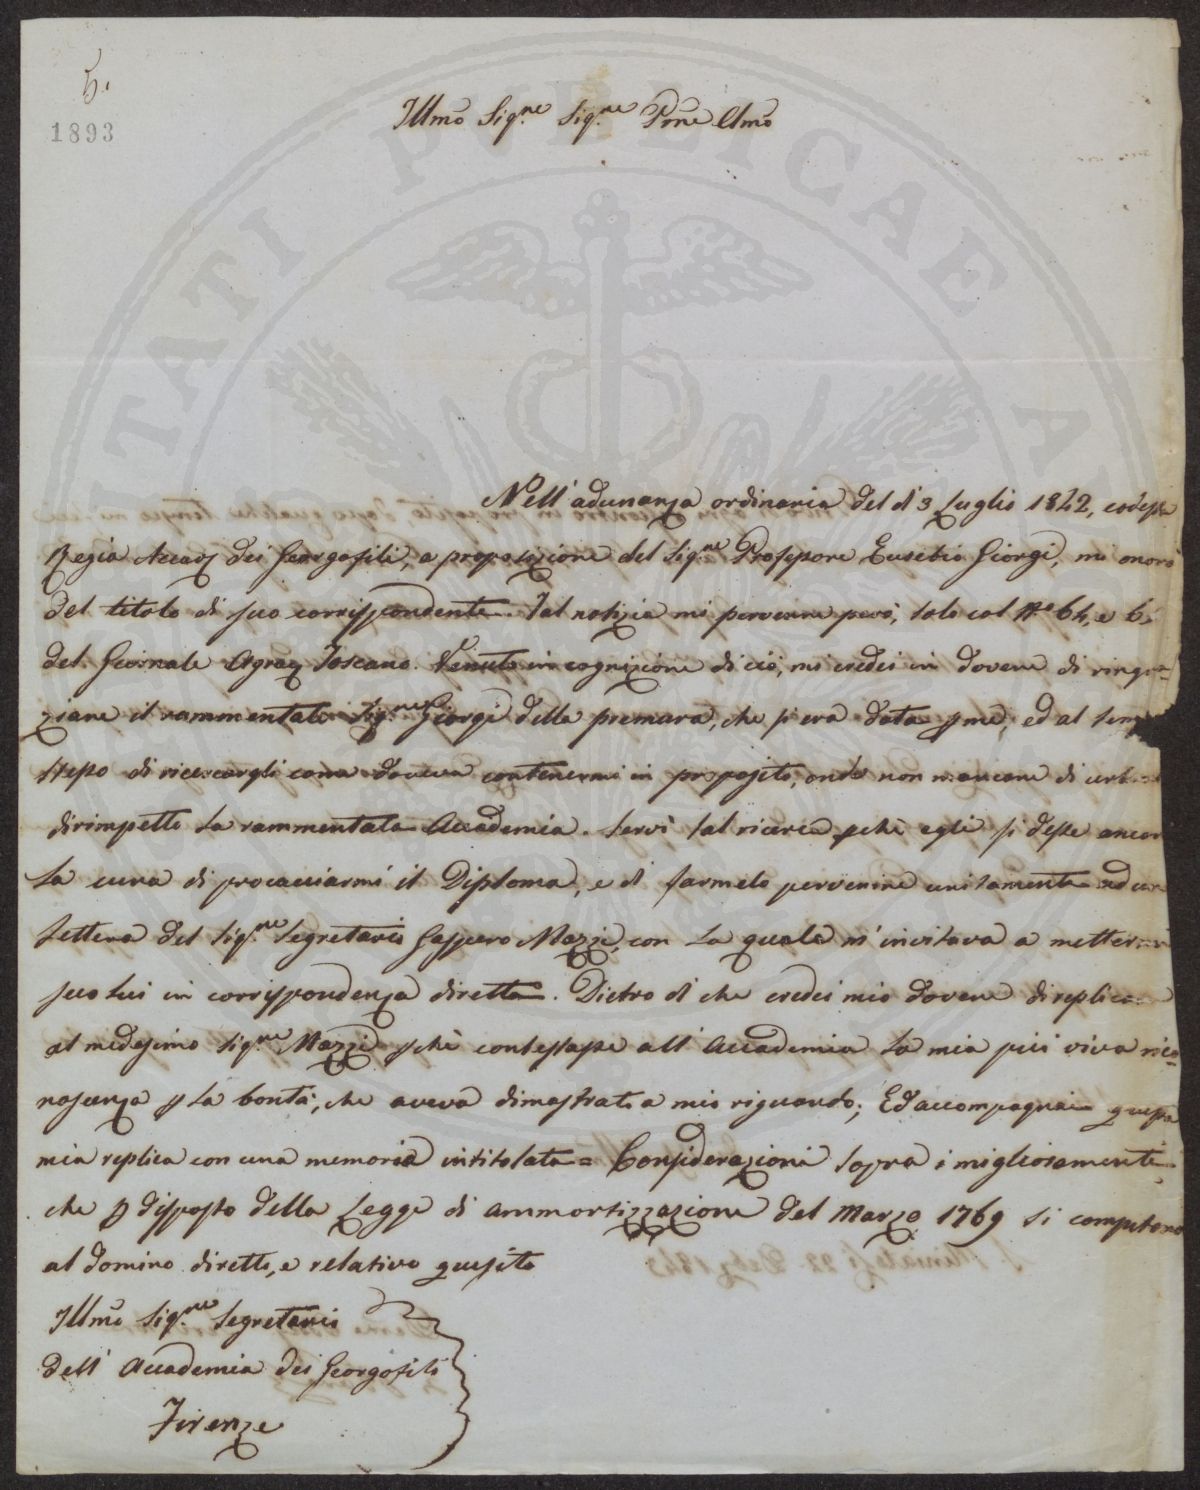 h.
1893
Illmo Sig.ne Sig.ne Prone Clmo
Nell' adunanza ordinaria del dì 3 Luglio 1842, codesta
Regia Accad dei Georgofili, a proposizione del Sig.re Professore Eusebio Giorgi, mi onorò
del titolo di suo corrispondente. Tal notizia mi pervenne però, solo col N° 64, e
del Giornale Agrar Toscano. Venuto in cognizione di ciò, mi credei in dovere di ringra=
ziare il rammentato Sig.re Giorgi della premura, che si era data p me, ed al tem
stesso di ricercargli come doveva contenermi in proposito, onde non mancare di
dirimpetto la rammentata Accademia. Servì tal ricerca pchè egli si desse ancor
la cura di procacciarmi il Diploma, e di farmelo pervenire unitamente ad una
lettera del Sig.re Segretario Gaspero Mazzi, con la quale m' invitava a metter
seco lui in corrispondenza diretta. Dietro di che credei mio dovere di replica
al medesimo Sig.re Mazzi pchè contestasse all' Accademia la mia più viva rico=
noscenza p la bontà, che aveva dimostrato a mio riguardo; Ed accompagnai questa
mia replica con una memoria intitolata = Considerazioni sopra i migliosamenti
che p disposto della Legge di ammortizzazione del Marzo 1769 si competono
al domino diretto, e relativo quesito
Illmo Sig.re Segretario
dell' Accademia dei Georgofili
Firenze
PUBLICAE